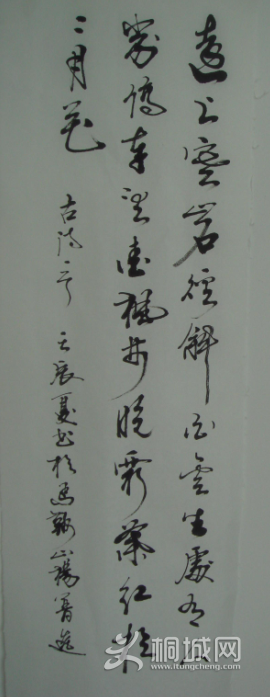 遠上寒山石徑斜白雲生處有人
家停車坐愛楓林晚霜葉紅於
二月花
古詩一首 壬辰夏书於馬鞍山楊
桐城网
www.itongcheng.com